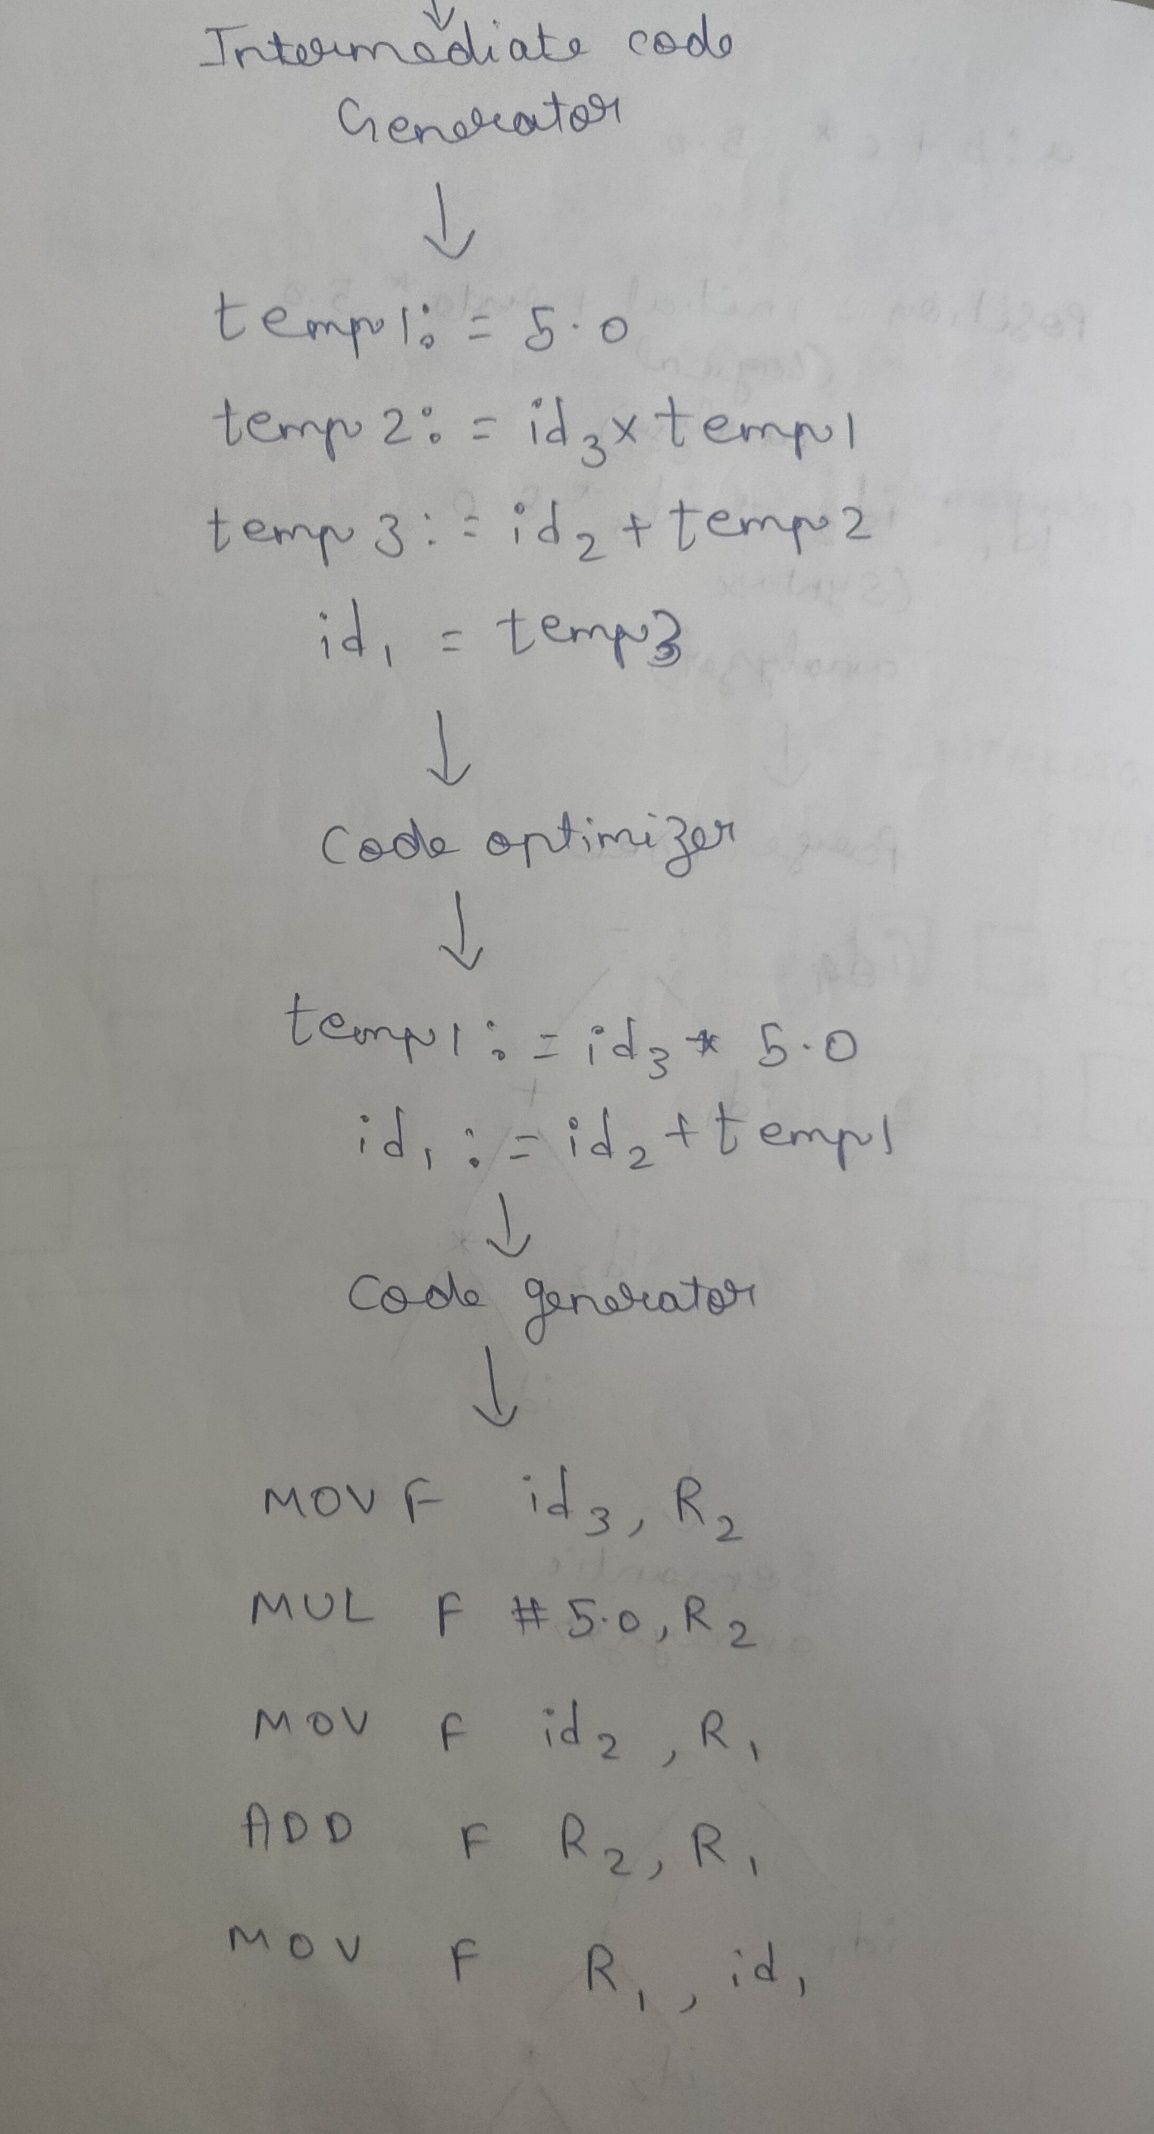 Intermediate code
Generator
↓
temp1:= 5.0
temp2:= id₃ x temp1
temp3:= id₂ + temp2
id₁ = temp3
↓
Code optimizer
↓
temp1:= id₃ * 5.0
id₁ := id₂ + temp1
↓
Code generator
↓
MOV F id₃, R₂
MUL F #5.0, R₂
MOV F id₂, R₁
ADD F R₂, R₁
MOV F R₁, id₁